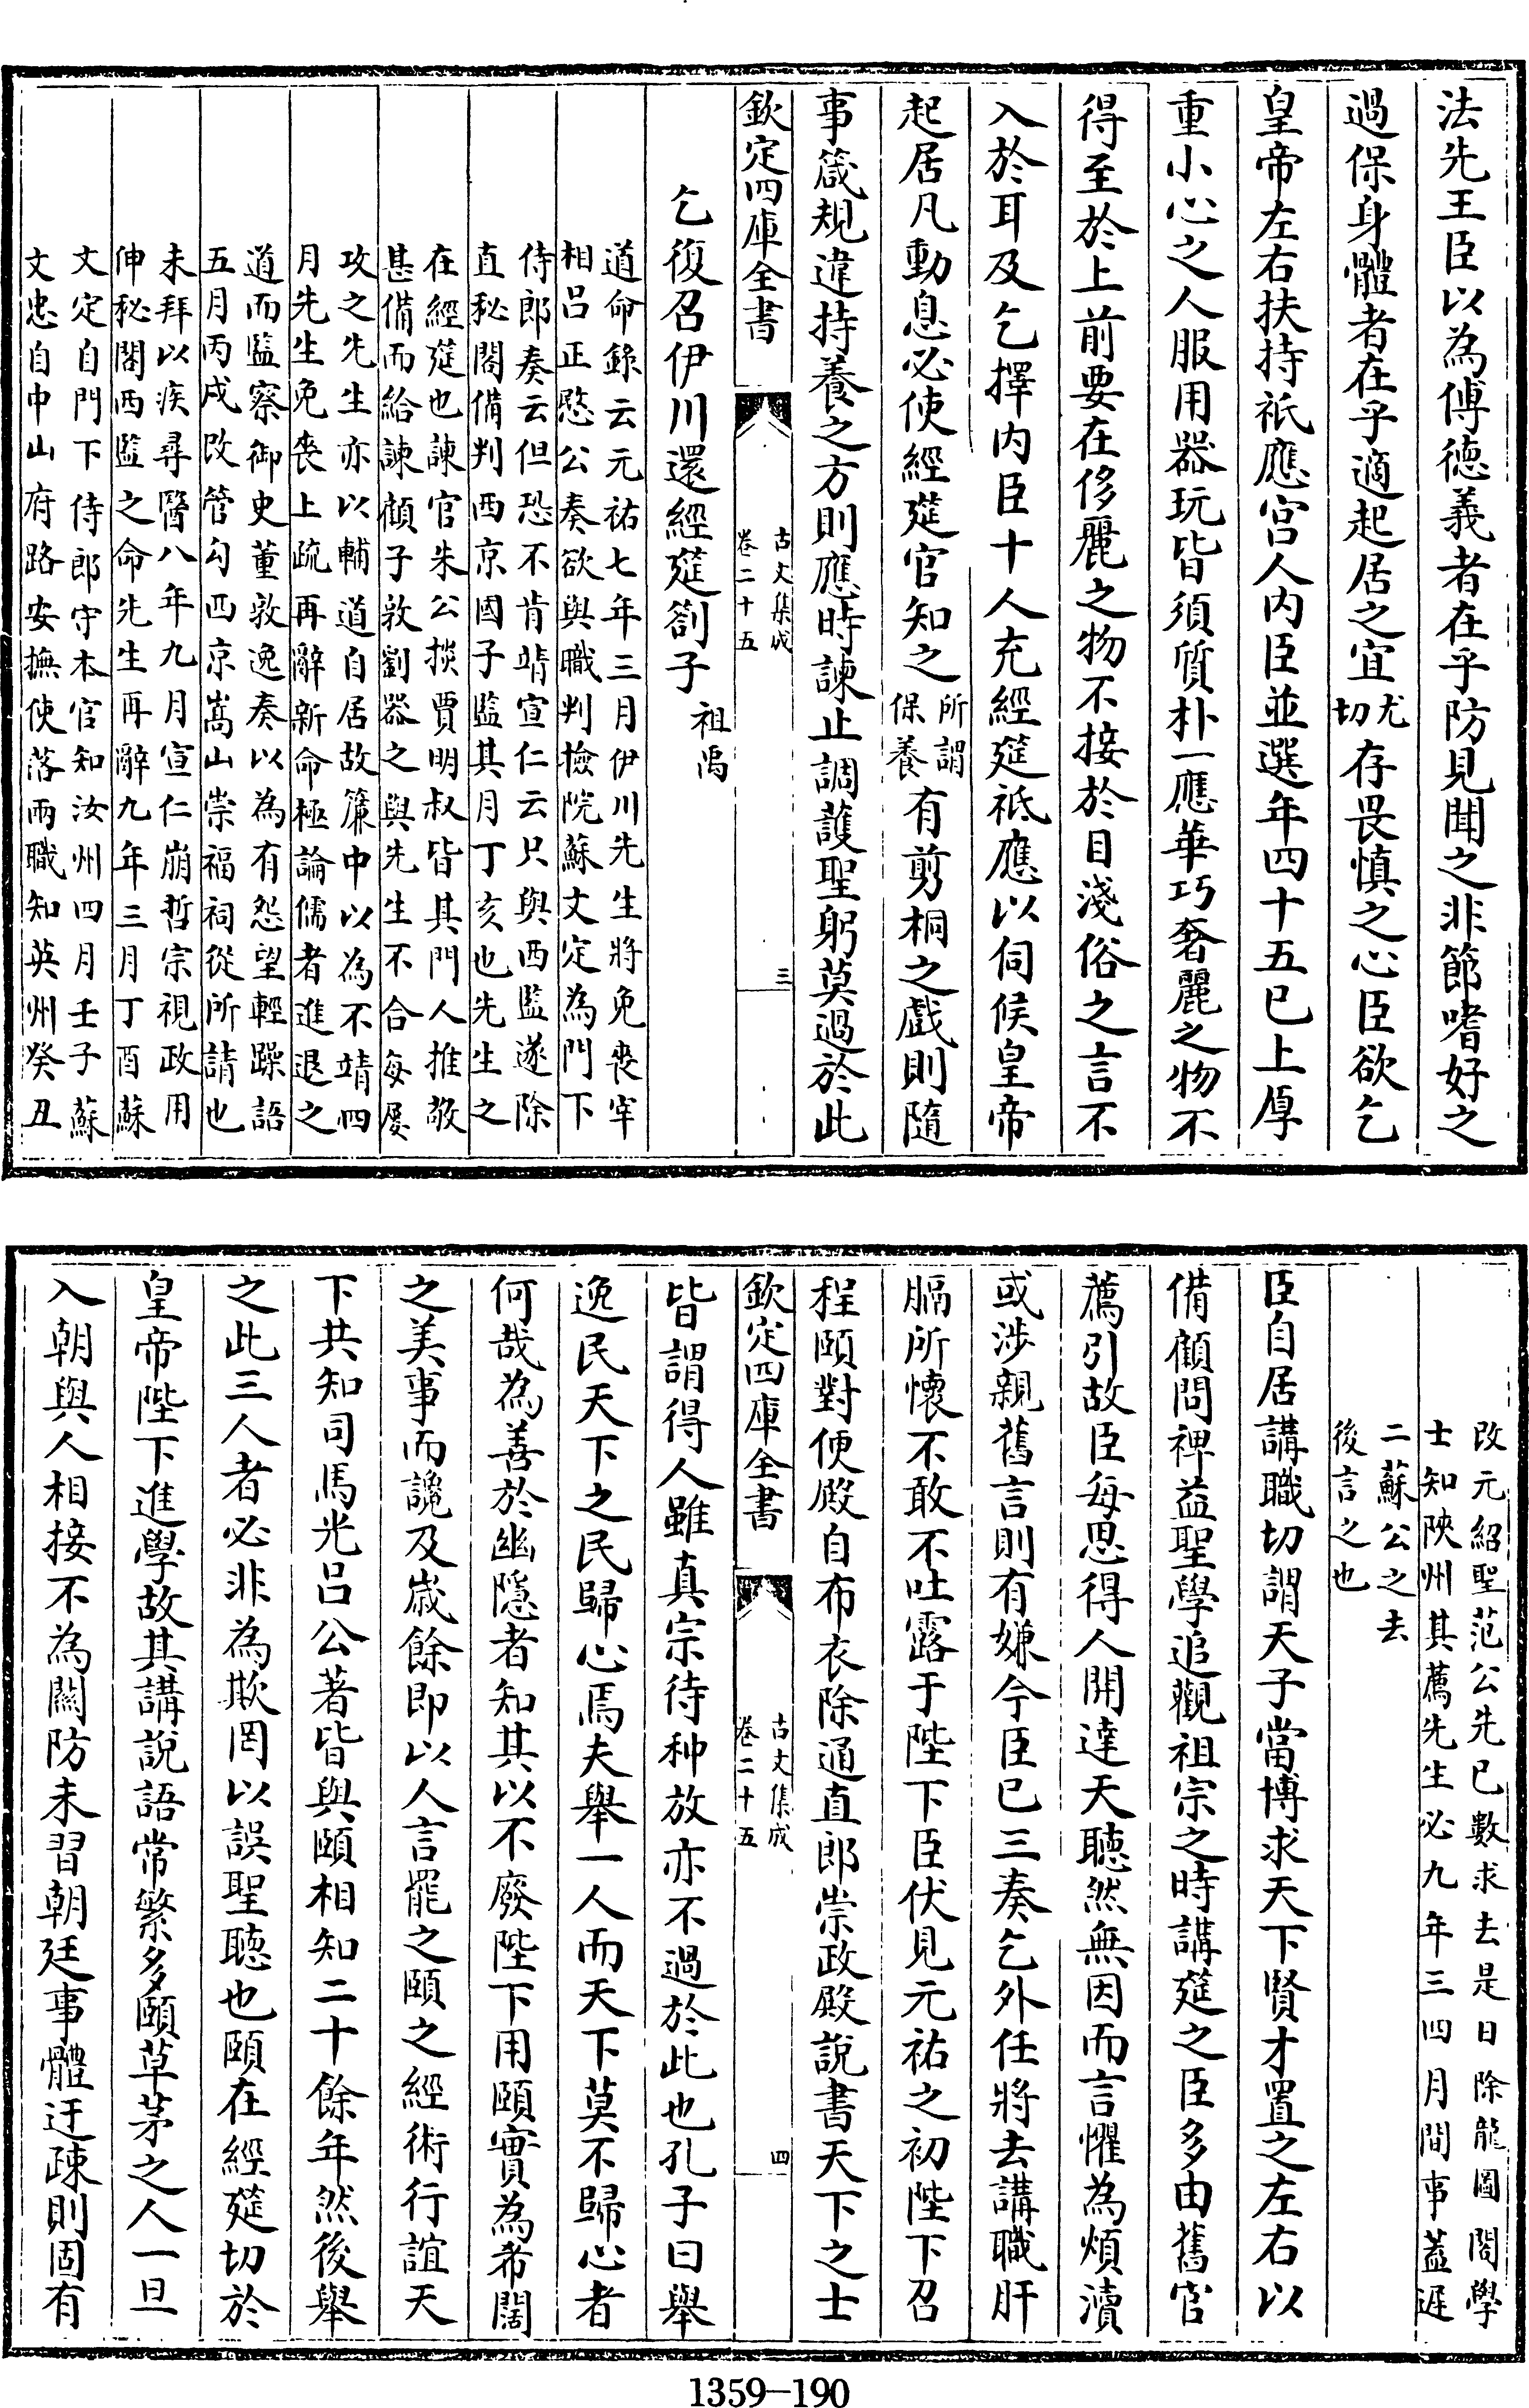 法先王臣以為傅德義者在乎防見聞之非節嗜好之
過保身體者在乎適起居之宜尤切存畏慎之心臣欲乞
皇帝左右扶持祇應宮人內臣並選年四十五已上厚
重小心之人服用器玩皆須質朴一應華巧奢麗之物不
得至於上前要在侈麗之物不接於目淺俗之言不
入於耳及乞擇內臣十人充經筵祗應以伺候皇帝
起居凡動息必使經筵官知之所謂保養有剪桐之戲則隨
事箴規違持養之方則應時諫止調護聖躬莫過於此
欽定四庫全書
古文集成
卷二十五
三
乞復召伊川還經筵劄子
祖禹
道命錄云元祐七年三月伊川先生將免喪宰
相呂正愍公奏欲與職判檢院蘇文定為門下
侍郎奏云但恐不肯靖宣仁云只與西監遂除
直秘閣備判西京國子監其月丁亥也先生之
在經筵也諫官朱公掞賈明叔皆其門人推敬
甚備而給諫顧子敦劉器之與先生不合每屢
攻之先生亦以輔道自居故簾中以為不靖四
月先生免喪上疏再辭新命極論儒者進退之
道而監察御史董敦逸奏以為有怨望輕躁語
五月丙戌改管勾西京嵩山崇福祠從所請也
未拜以疾尋醫八年九月宣仁崩哲宗視政用
伸秘閣西監之命先生再辭九年三月丁酉蘇
文定自門下侍郎守本官知汝州四月壬子蘇
文忠自中山府路安撫使落兩職知英州癸丑
改元紹聖范公先已數求去是日除龍圖閣學
士知陝州其薦先生必九年三四月間事蓋遲
二蘇公之去
後言之也
臣自居講職切謂天子當博求天下賢才置之左右以
備顧問裨益聖學追觀祖宗之時講筵之臣多由舊官
薦引故臣每思得人開達天聽然無因而言懼為煩瀆
或涉親舊言則有嫌今臣已三奏乞外任將去講職肝
膈所懷不敢不吐露于陛下臣伏見元祐之初陛下召
程頤對便殿自布衣除通直郎崇政殿說書天下之士
欽定四庫全書
古文集成
卷二十五
四
皆謂得人雖真宗待种放亦不過於此也孔子曰舉
逸民天下之民歸心焉夫舉一人而天下莫不歸心者
何哉為善於幽隱者知其以不廢陛下用頤實為希闊
之美事而讒及歲餘即以人言罷之頤之經術行誼天
下共知司馬光呂公著皆與頤相知二十餘年然後舉
之此三人者必非為欺罔以誤聖聽也頤在經筵切於
皇帝陛下進學故其講說語常繁多頤草茅之人一旦
入朝與人相接不為關防未習朝廷事體迂疎則固有
1359-190